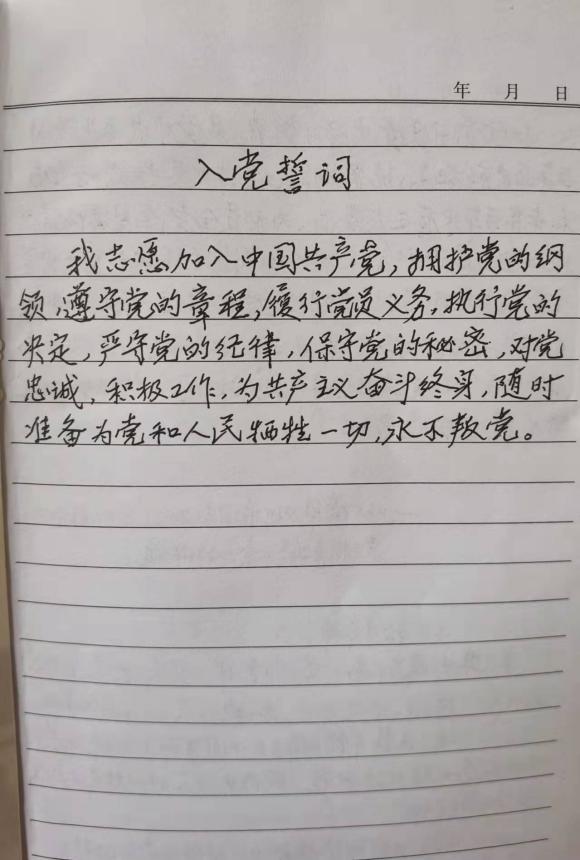 年 月 日
入党誓词
我志愿加入中国共产党，拥护党的纲
领，遵守党的章程，履行党员义务，执行党的
决定，严守党的纪律，保守党的秘密，对党
忠诚，积极工作，为共产主义奋斗终身，随时
准备为党和人民牺牲一切，永不叛党。